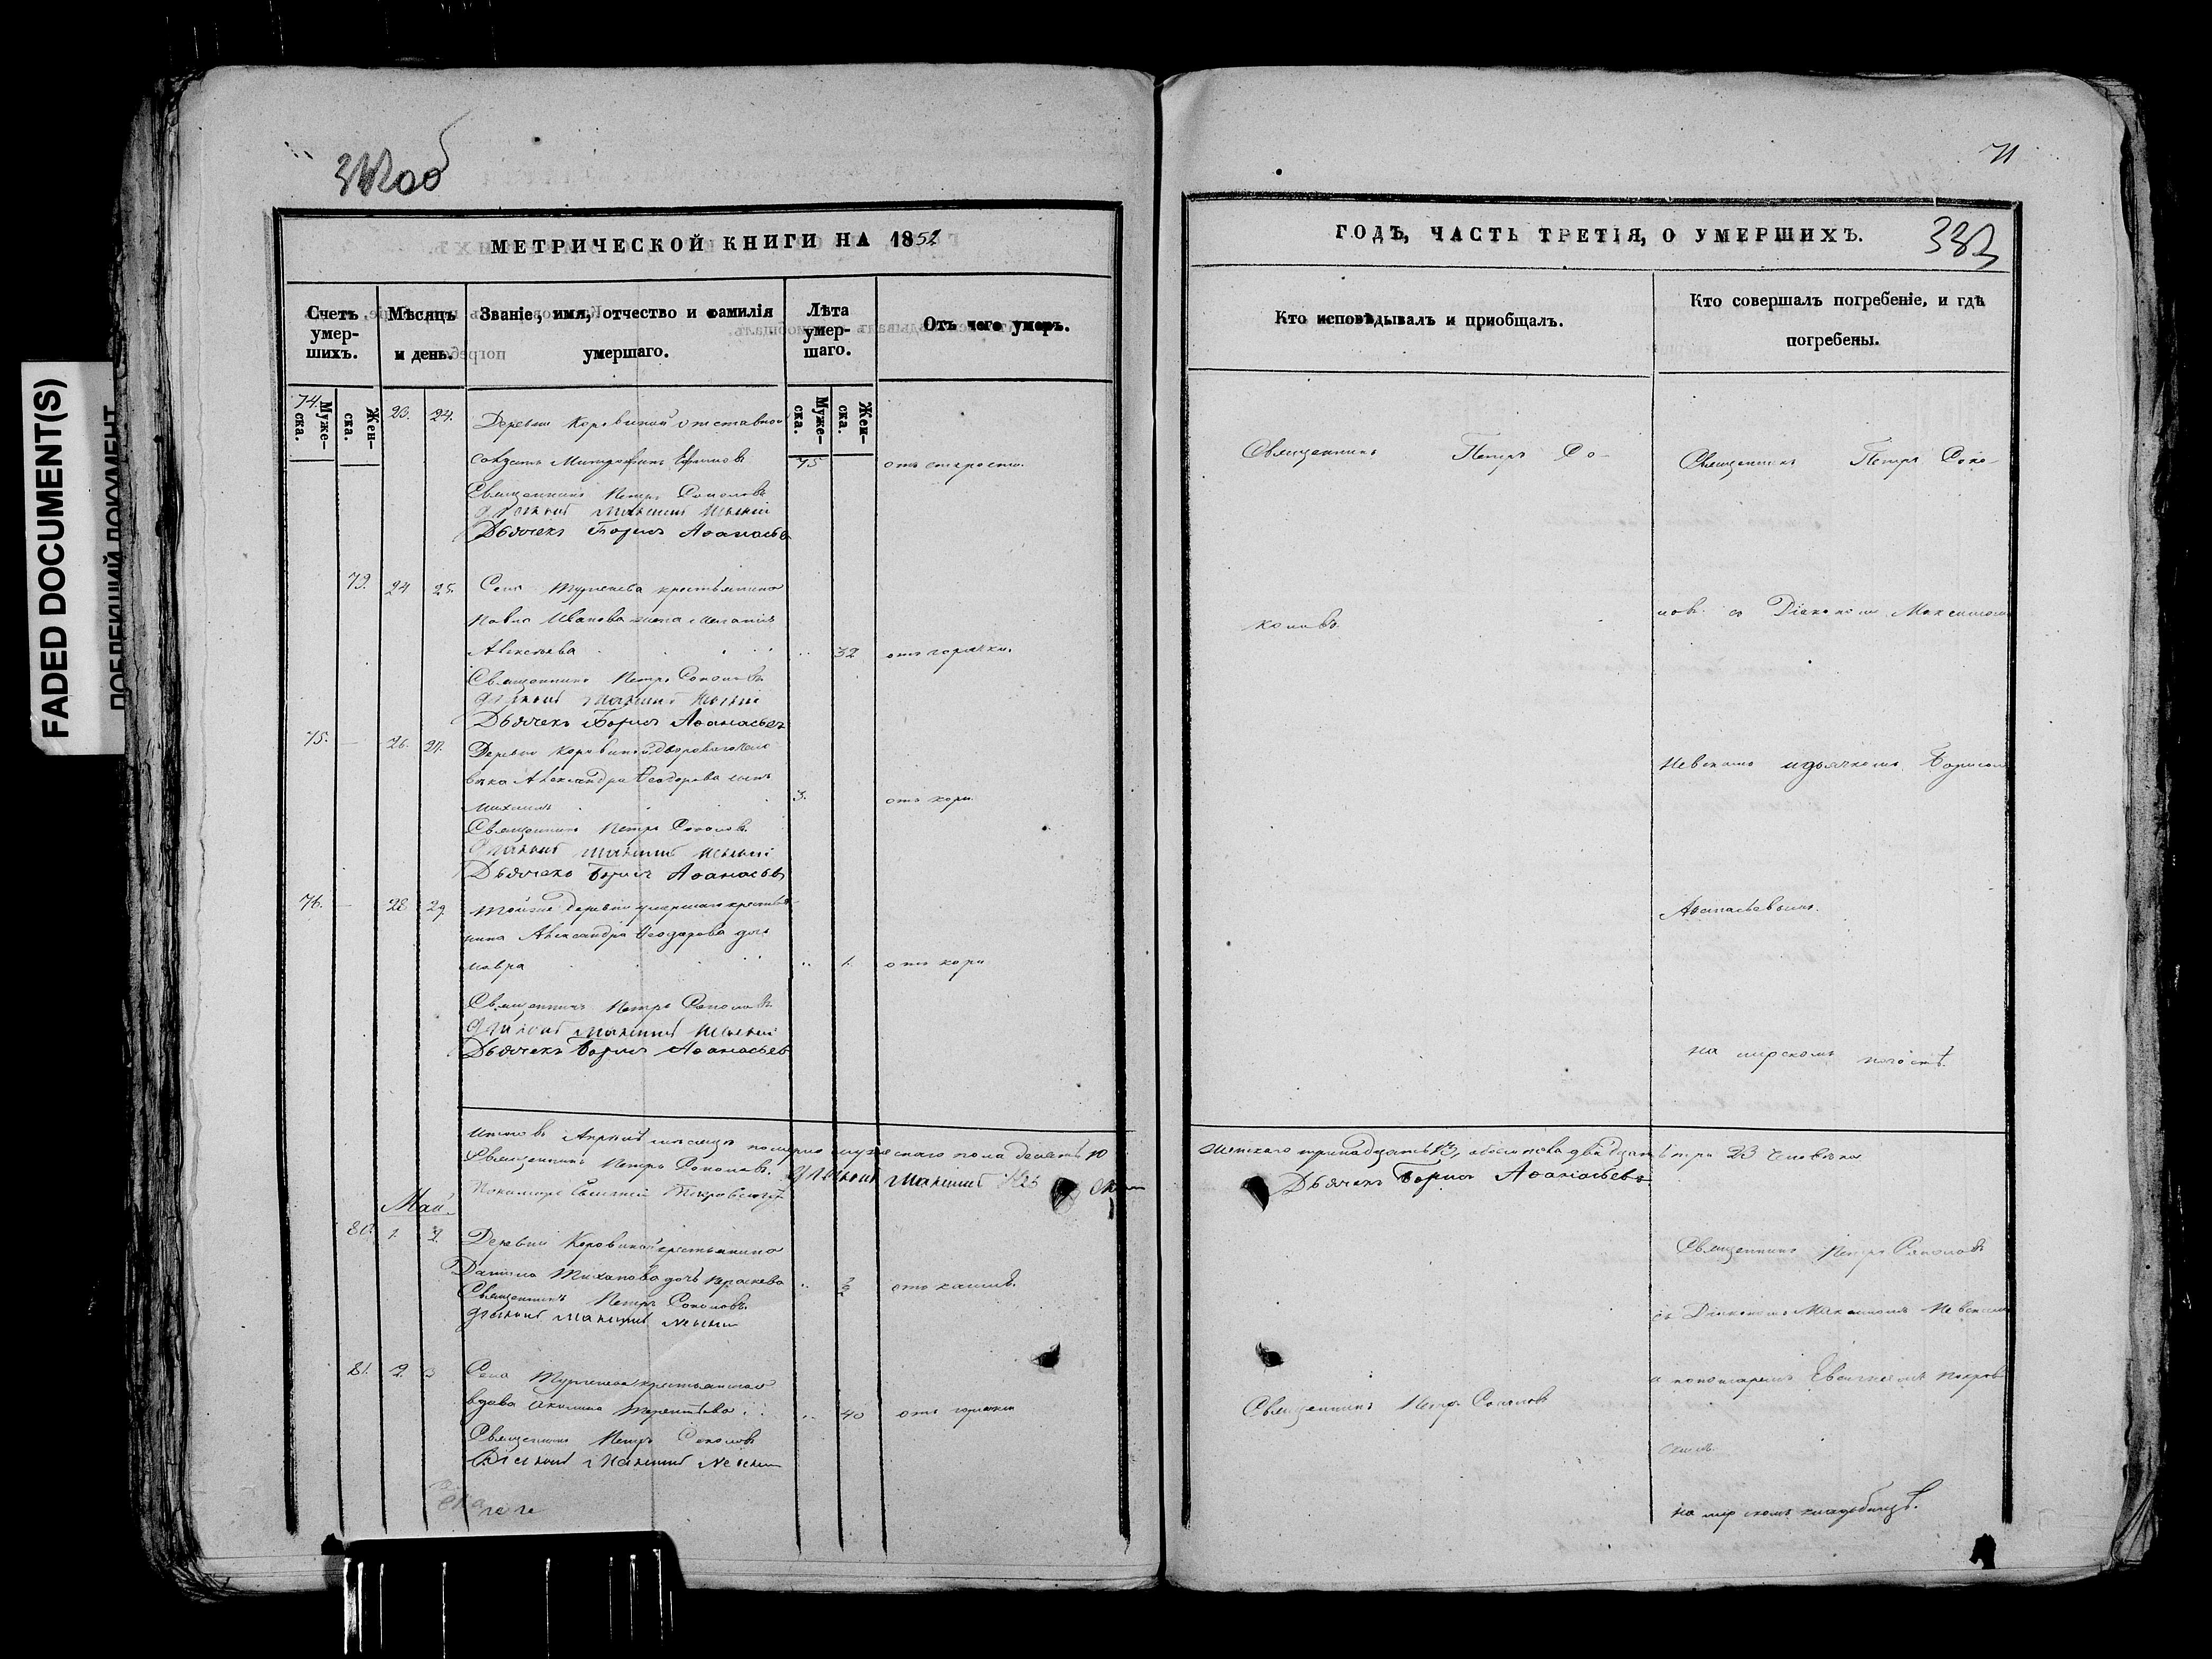 FADED DOCUMENT(S)
МЕТРИЧЕСКОЙ КНИГИ НА 1852
Счетъ умер-шихъ.
Мѣсяцъ и день.
Званіе, имя, отчество и фамилія умершаго.
Лѣта умер-шаго.
Отъ чего умеръ.
Муже-ска.
Жен-ска.
Муже-ска.
Жен-ска.
74. 23. 24. Деревни Коровиной отставной
солдатъ Митрофанъ Ефимовъ 75 отъ старости.
Священникъ Петръ Соколовъ
Діаконъ Максимъ Невскій
Дьячекъ Борисъ Аѳанасьевъ
79. 24 25. Села Тургенева крестьянина
Павла Иванова жена Меланія
Алексѣева 32 отъ горячки.
Священникъ Петръ Соколовъ
Діаконъ Максимъ Невскій
Дьячекъ Борисъ Аѳанасьевъ
75. 26. 27. Деревни Коровиной двороваго чело
вѣка Александра Ѳеодорова сынъ
Михаилъ 3. отъ кори.
Священникъ Петръ Соколовъ
Діаконъ Максимъ Невскій
Дьячекъ Борисъ Аѳанасьевъ
76. 28 29 Тойже деревни умершаго крестья
нина Александра Ѳеодорова дочь
Мавра 1. отъ кори
Священникъ Петръ Соколовъ
Діаконъ Максимъ Невскій
Дьячекъ Борисъ Аѳанасьевъ
Итого въ Апрѣлѣ мѣсяцѣ померло мужескаго пола десять 10
Священникъ Петръ Соколовъ. Діаконъ Максимъ
Пономарь Евгеній Покровскій
Май
80. 1. 2. Деревни Коровиной крестьянина
Данила Тиханова дочь Параскева отъ кашля.
Священникъ Петръ Соколовъ
Діаконъ Максимъ Невскій
81. 2. 3 Села Тургенева крестьянская
вдова Акилина Терентьева 40 отъ горячки
Священникъ Петръ Соколовъ
Діаконъ Максимъ Невскій
71
ГОДЪ, ЧАСТЬ ТРЕТІЯ, О УМЕРШИХЪ.
383
Кто исповѣдывалъ и приобщалъ.
Кто совершалъ погребеніе, и гдѣ погребены.
Священникъ Петръ Со-
коловъ.
Священникъ Петръ Соко-
ловъ съ Діакономъ Максимомъ
Невскимъ и дьячкомъ Борисомъ
Аѳанасьевымъ.
на мірскомъ погостѣ.
женскаго тринадцать 13, обоего пола двадцать три 23 человѣка
Дьячекъ Борисъ Аѳанасьевъ
Священникъ Петръ Соколовъ
Священникъ Петръ Соколовъ
съ Діакономъ Максимомъ Невскимъ
и пономаремъ Евгеніемъ Покров
скимъ
на мірскомъ кладбищѣ.